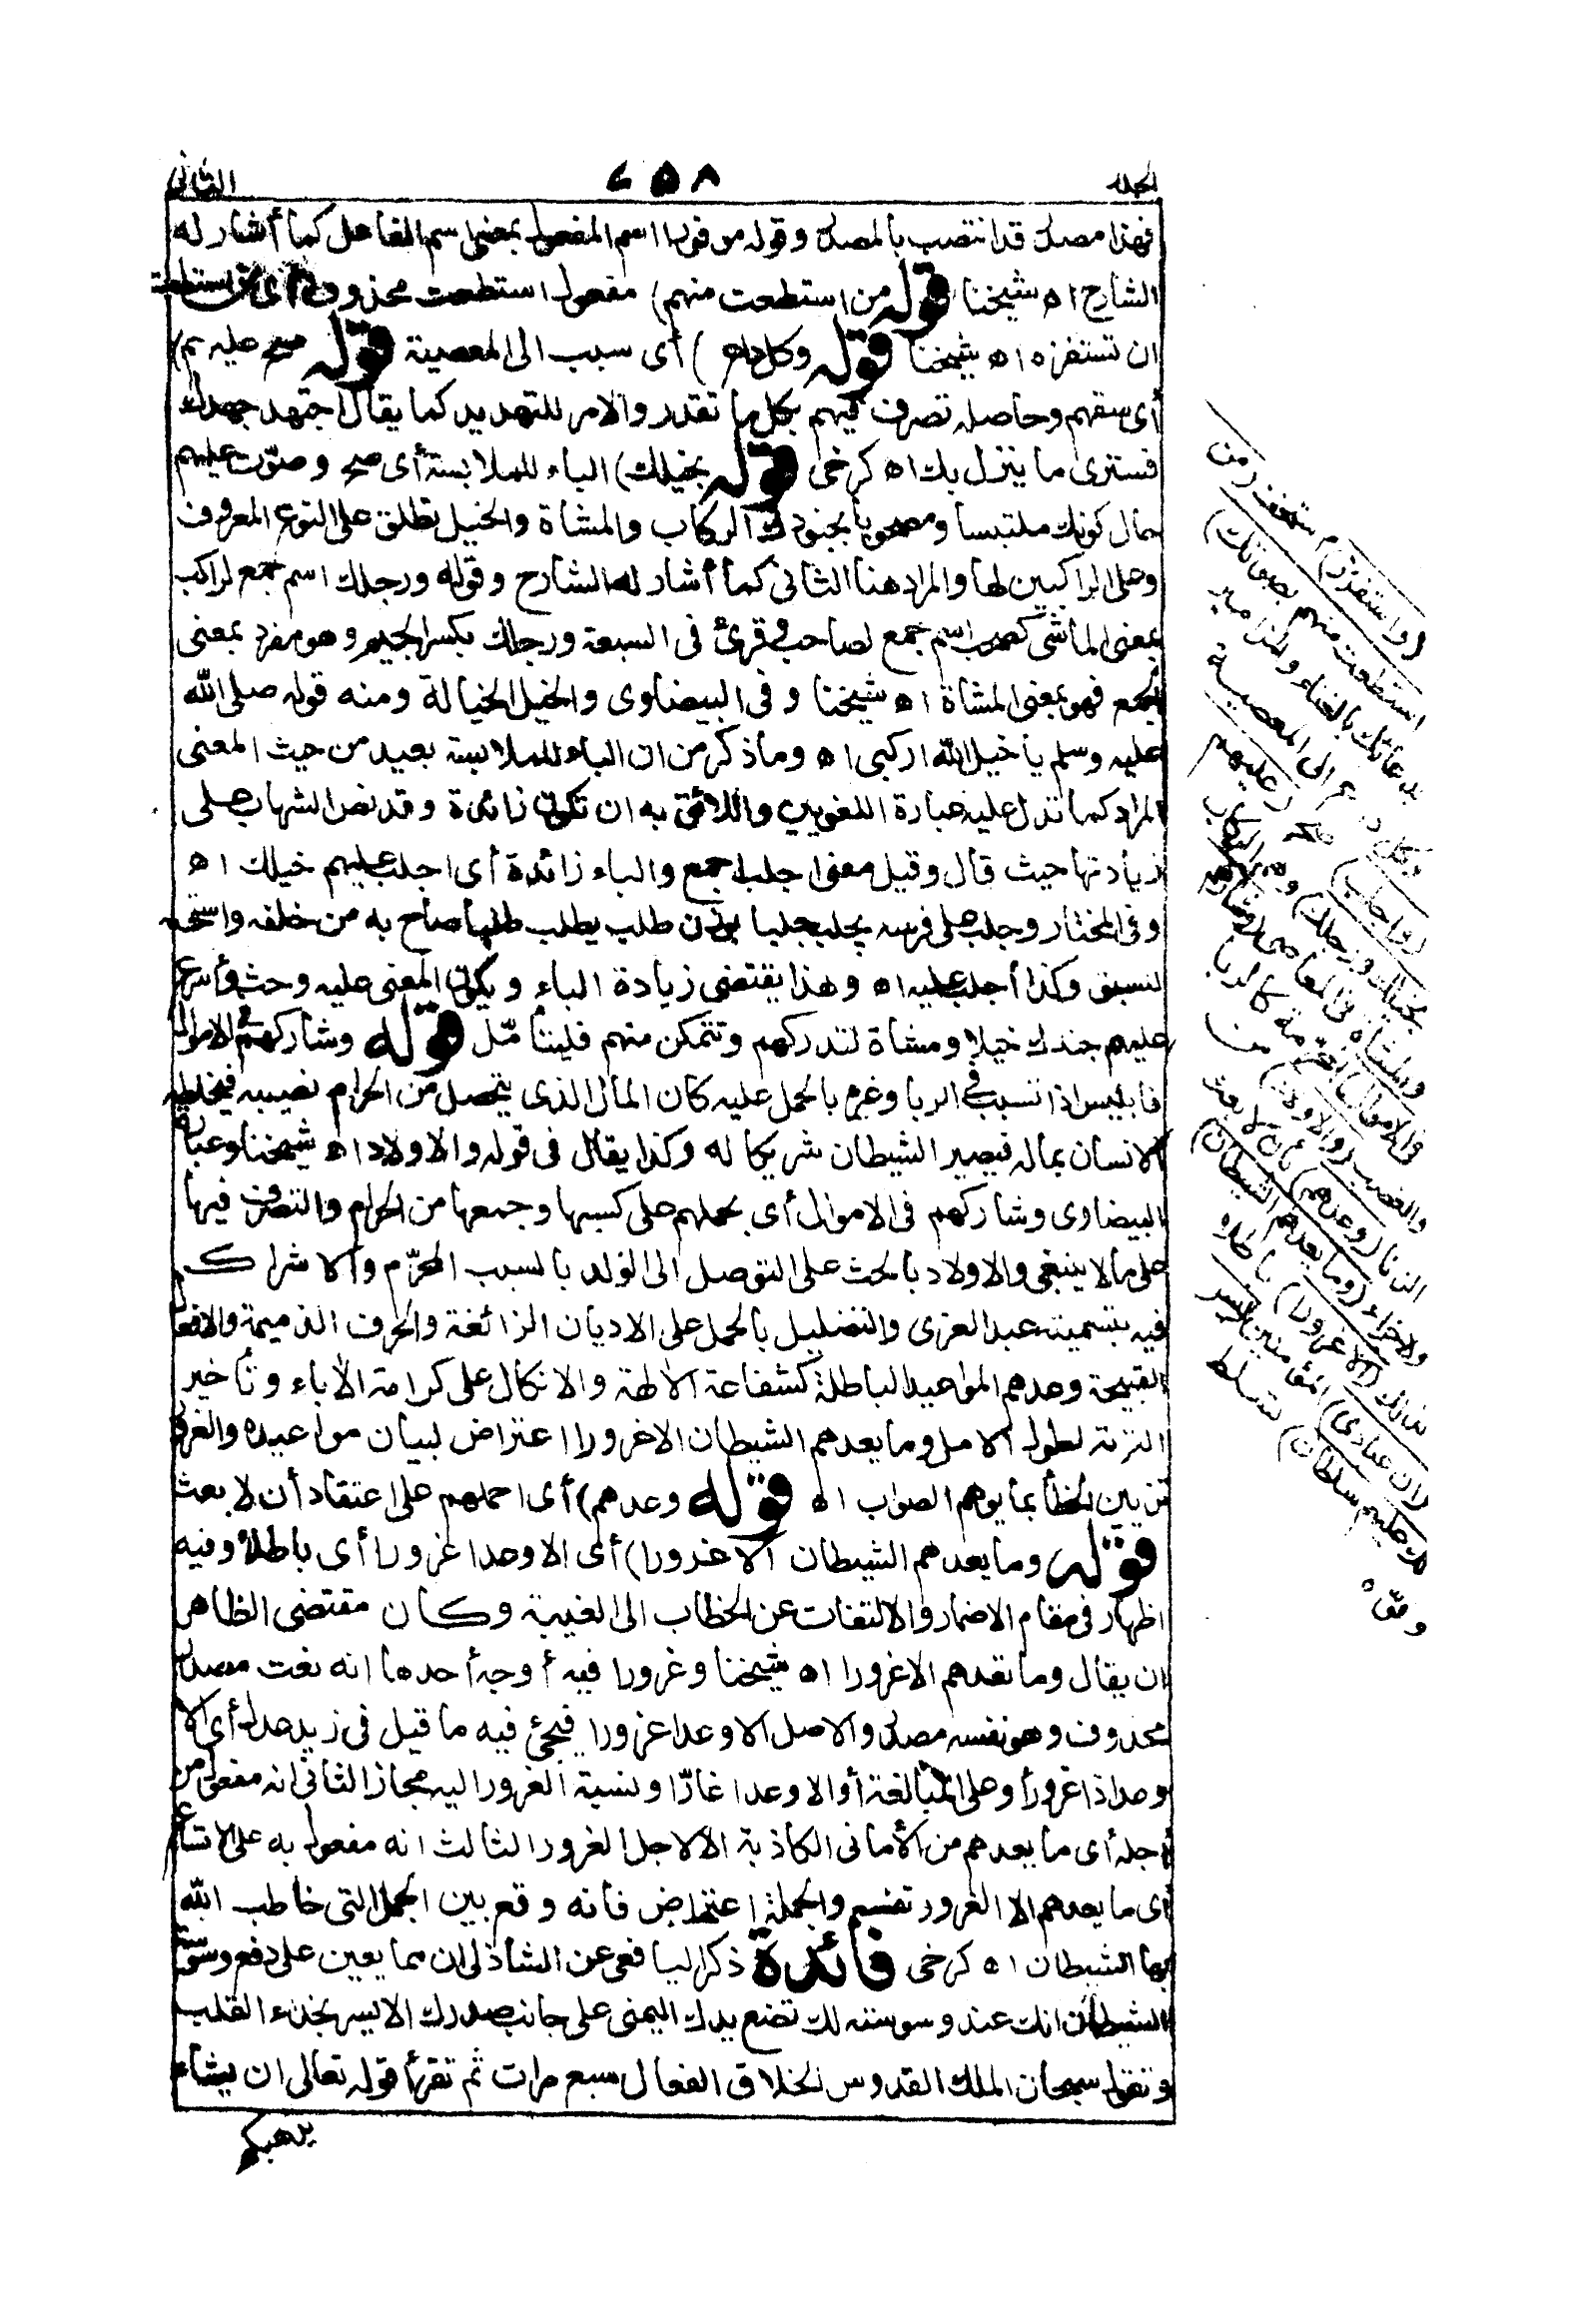 الجلد ٦٥٨ الثانى
فهذا مصدر قد انتصب بالمصدر وقوله موفورا اسم المفعول بمعنى اسم الفاعل كما أشار له
الشارح اه شيخنا قوله من استطعت منهم) مفعول استطعت محذوف أى من استطعت
ان تستفزه اه شيخنا قوله وكل داع) أى سبب الى المعصية قوله صح عليهم)
أى سقهم وحاصله تصرف فيهم بكل ما تقدر والامر للتهديد كما يقال اجتهد جهدك
فسترى ما ينزل بك اه كرخى قوله بخيلك) الباء للملابسة أى صح وصوّت عليهم
حال كونك ملتبسا ومصحوبا بجنودك الركاب والمشاة والخيل يطلق على النوع المعروف
وعلى الراكبين لها والمراد هنا الثانى كما أشار له الشارح وقوله ورجلك اسم جمع لراكب
بمعنى الماشى كصحب اسم جمع لصاحب وقرئ فى السبعة ورجلك بكسر الجيم وهو مفرد بمعنى
الجمع فهو بمعنى المشاة اه شيخنا وفى البيضاوى والخيل الخيالة ومنه قوله صلى الله
عليه وسلم يا خيل الله اركبى اه وما ذكر من ان الباء للملابسة بعيد من حيث المعنى
المراد كما تدل عليه عبارة اللغويين واللائق به ان تكون زائدة وقد نص الشهاب على
زيادتها حيث قال وقيل معنى اجلب اجمع والباء زائدة أى اجلب عليهم خيلك اه
وفى المختار وجلب على فرسه يجلب جلبا بوزن طلب يطلب طلبا صاح به من خلفه واستحثه
للسبق وكذا أجلب عليه اه وهذا يقتضى زيادة الباء ويكون المعنى عليه وحث وأسرع
عليهم جندك خيلا ومشاة لتدركهم وتتمكن منهم فليتأمّل قوله وشاركهم فى الاموال
فابليس اذا تسبب فى الربا وغيره بالحمل عليه كان المال الذى يتحصل من الحرام نصيبه فيخلطه
الانسان بماله فيصير الشيطان شريكا له وكذا يقال فى قوله والاولاد اه شيخنا وعبارة
البيضاوى وشاركهم فى الاموال أى بحملهم على كسبها وجمعها من الحرام والتصرف فيها
على ما لا ينبغى والاولاد بالحث على التوصل الى الولد بالسبب المحرّم والاشراك
فيه بتسميته عبد العزى والتضليل بالحمل على الاديان الزائغة والحرف الذميمة والافعال
القبيحة وعدهم المواعيد الباطلة كشفاعة الالهة والاتكال على كرامة الآباء وتأخير
التوبة لطول الامل وما يعدهم الشيطان الاغرورا اعتراض لبيان مواعيده والغرور
تزيين الخطأ بما يوهم الصواب اه قوله وعدهم) أى احملهم على اعتقاد أن لا بعث
قوله وما يعدهم الشيطان الاغرورا) أى الا وعدا غرورا أى باطلا وفيه
اظهار فى مقام الاضمار والالتفات عن الخطاب الى الغيبة وكان مقتضى الظاهر
ان يقال وما تعدهم الاغرورا اه شيخنا وغرورا فيه أوجه أحدها انه نعت مصدر
محذوف وهو نفسه مصدر والاصل الا وعدا غرورا فيجئ فيه ما قيل فى زيد عدل أى الا
وعدا ذا غرور أو على المبالغة أو الا وعدا غارّا ونسبة الغرور اليه مجاز الثانى انه مفعول من
أجله أى ما يعدهم من الأمانى الكاذبة الا لاجل الغرور الثالث انه مفعول به على الاتساع
أى ما يعدهم الا الغرور نفسه والجملة اعتراض فانه وقع بين الجمل التى خاطب الله
بها الشيطان اه كرخى فائدة ذكر اليافعى عن الشاذلى ان مما يعين على دفع وسوسة
الشيطان انك عند وسوسته لك تضع يدك اليمنى على جانب صدرك الايسر بحذاء القلب
وتقول سبحان الملك القدوس الخلاق الفعال سبع مرات ثم تقرأ قوله تعالى ان يشأ
يذهبكم
(واستفزز) استخف (من
استطعت منهم بصوتك)
بدعائك بالغناء والمزامير
وكل داع الى المعصية
(واجلب) صح (عليهم
بخيلك ورجلك) وهم الركاب
والمشاة فى المعاصى (وشاركهم
فى الاموال) المحرمة كالربا
والغصب (والاولاد) من
الزنا (وعدهم) بأن لا بعث
ولا جزاء (وما يعدهم الشيطان)
بذلك (الا غرورا) باطلا
(ان عبادى) المؤمنين (ليس
لك عليهم سلطان) تسلط
وقوّة